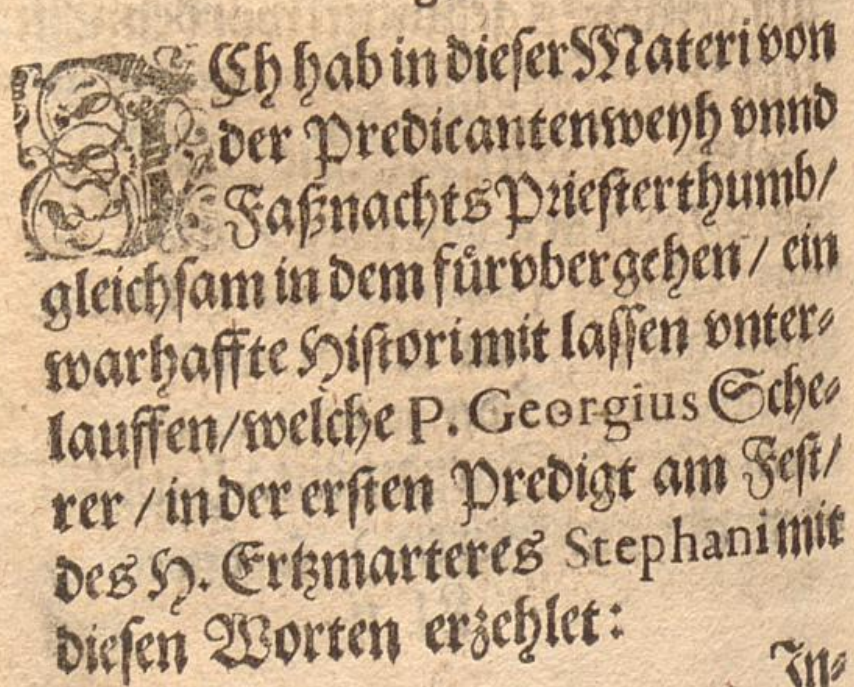 ICh hab in dieser Materi von
der Predicantenweyh vnnd
FaßnachtsPriesterthumb/
gleichsam in dem fürvbergehen / ein
warhaffte Histori mit lassen vnter⸗
lauffen/welche P. Georgius Sche⸗
rer / in der ersten Predigt am Fest/
des H. Ertzmarteres Stephani mit
diesen Worten erzehlet:
In⸗